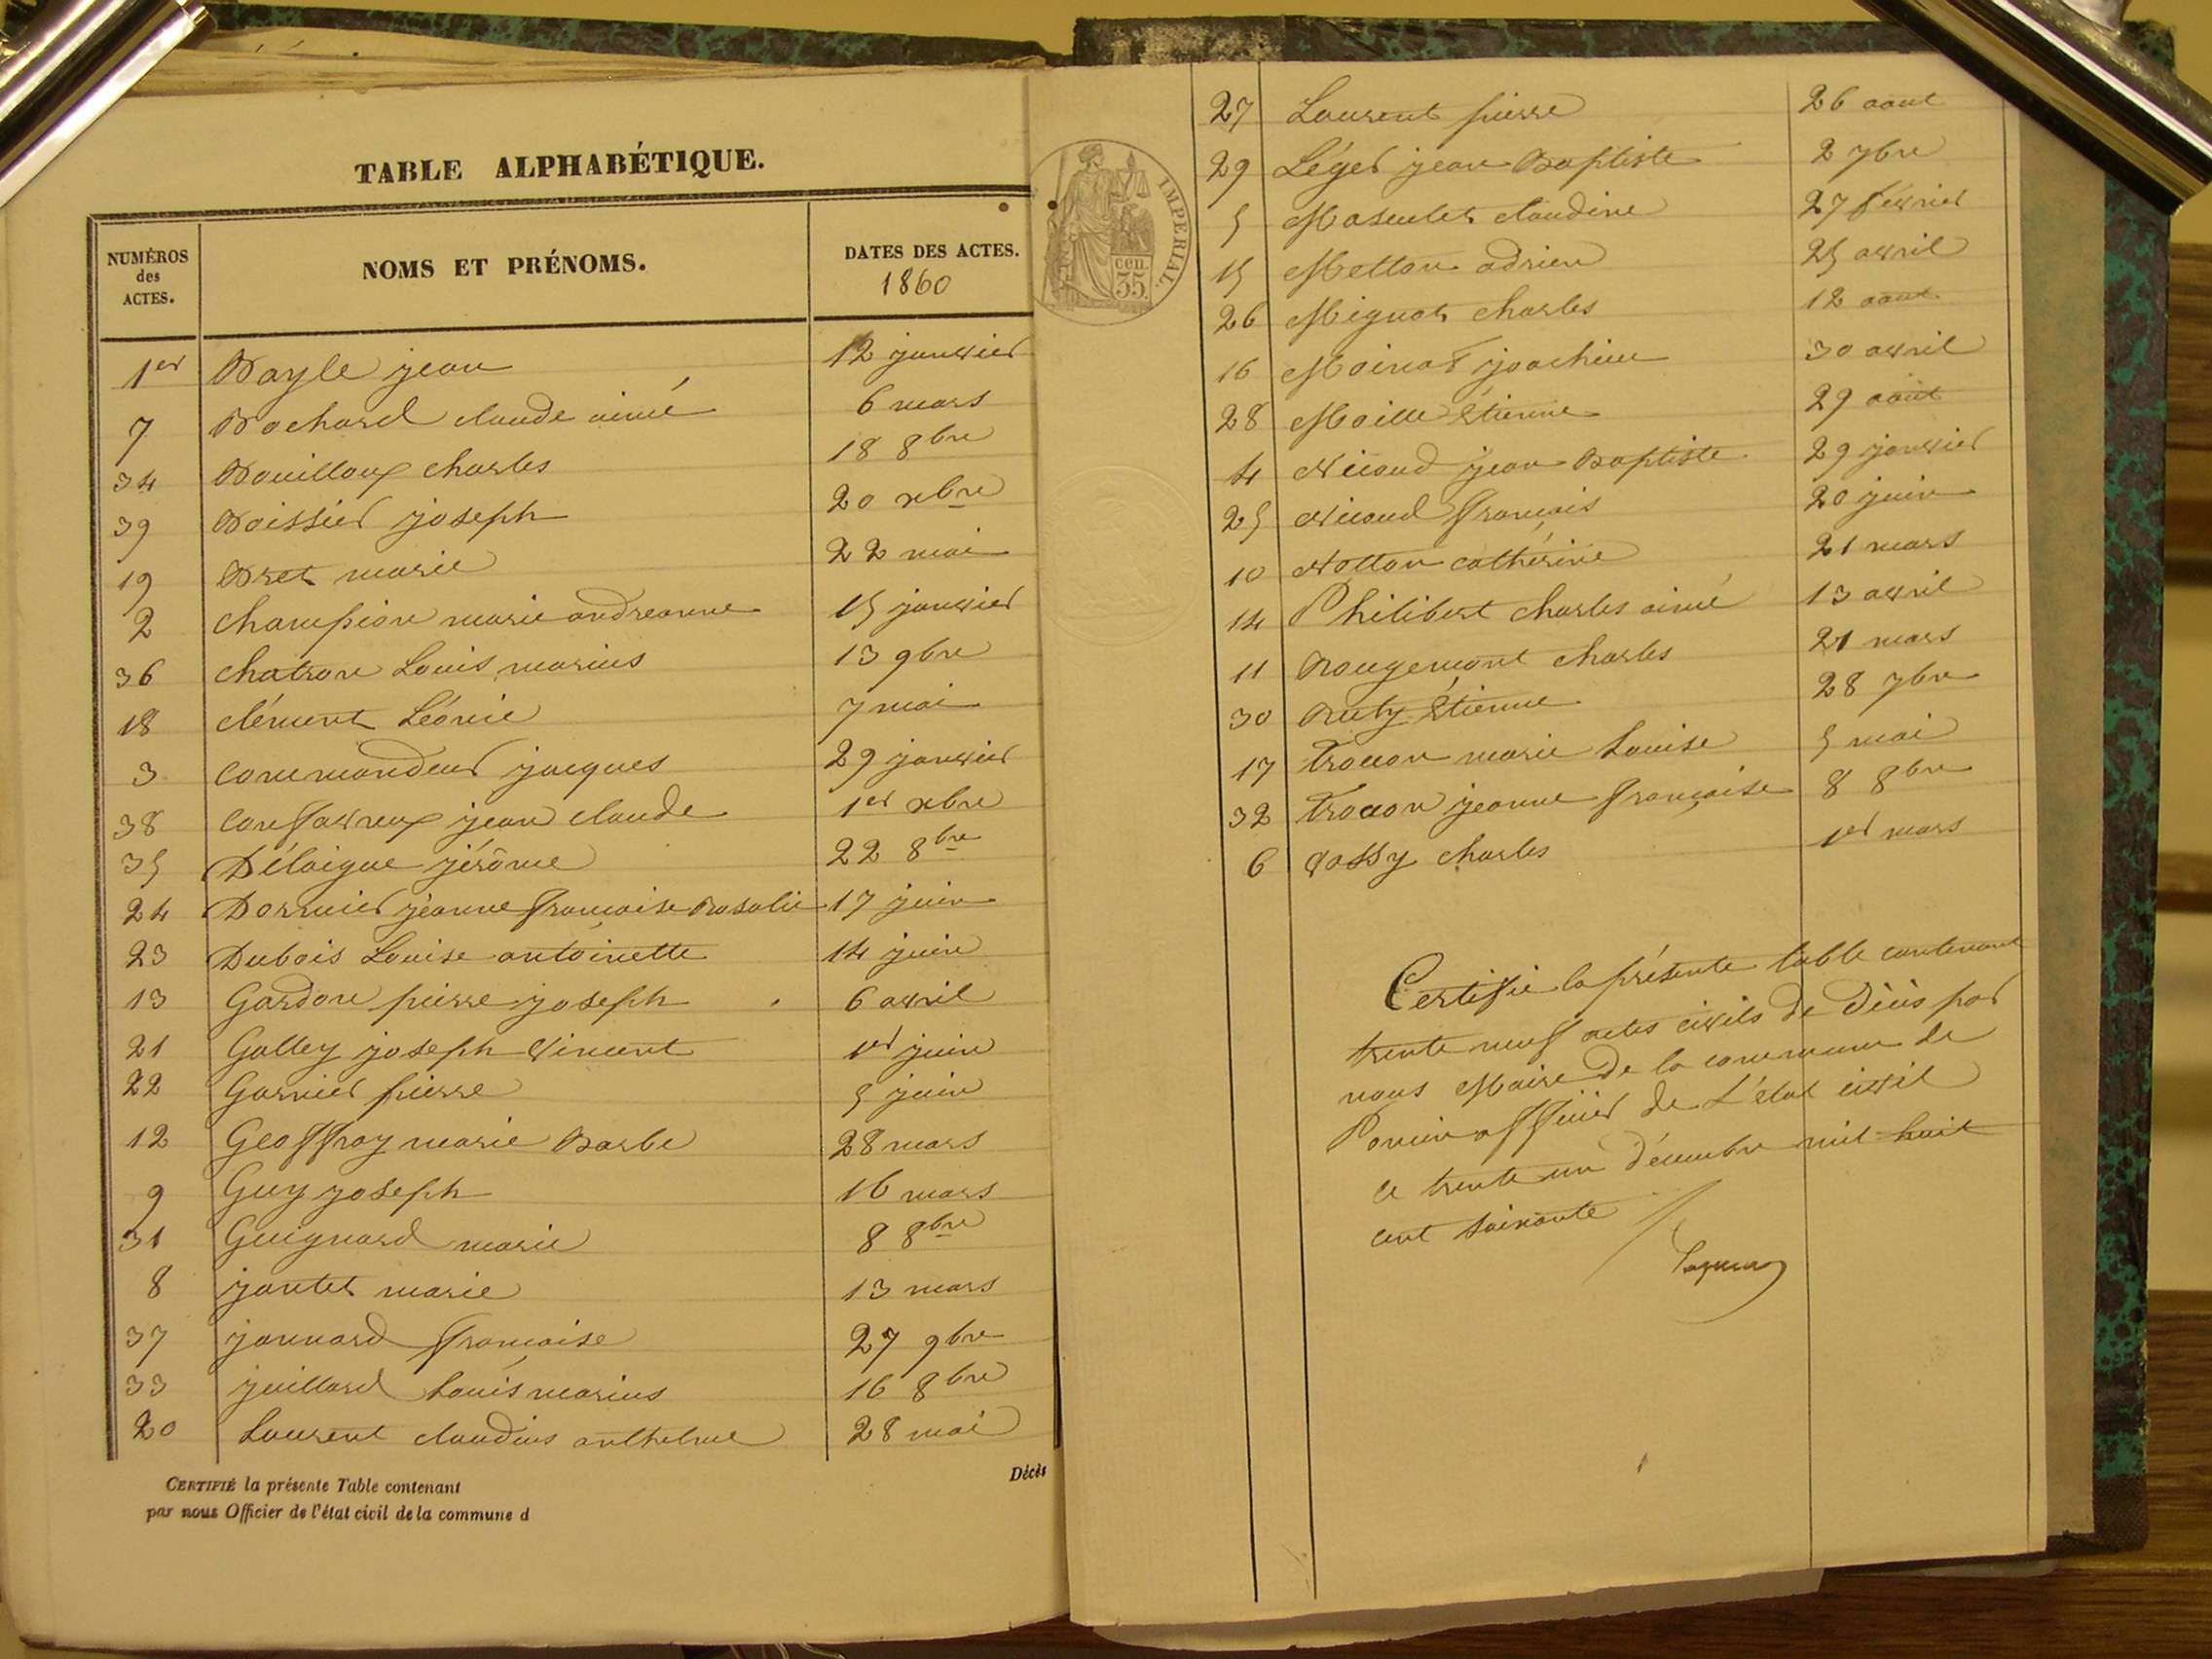 TABLE ALPHABÉTIQUE.
NUMÉROS des ACTES. NOMS ET PRÉNOMS. DATES DES ACTES. 1860
1er Bayle jean 12 janvier
7 Bochard claude aimé 6 mars
34 Bouilloux charles 18 8bre
39 Boissier joseph 20 xbre
19 Bret marie 22 mai
2 champion marie andréanne 15 janvier
36 chatron Louis marius 13 9bre
18 clément Léonie 7 mai
3 commandeur jacques 29 janvier
38 confavreux jean claude 1er xbre
35 Délaigue jérôme 22 8bre
24 Dorrnier jeanne françoise Rosalie 17 juin
23 Dubois Louise antoinette 14 juin
13 Gardon pierre joseph 6 avril
21 Galley joseph Vincent 1er juin
22 Garnier pierre 5 juin
12 Geoffray marie Barbe 28 mars
9 Guy joseph 16 mars
31 Guignard marie 8 8bre
8 jantet marie 13 mars
37 jannard françoise 27 9bre
33 juillard Louis marius 16 8bre
20 Laurent claudius anthelme 28 mai
CERTIFIÉ la présente Table contenant
Décès
par nous Officier de l'état civil de la commune d
IMPERIAL.
CEN.
35.
27 Laurent pierre 26 aout
29 Léger jean Baptiste 2 7bre
5 Masculet claudine 27 février
15 Metton adrien 25 avril
26 Mignot charles 12 aout
16 Moinat joachim 30 avril
28 Moille Etienne 29 août
4 Nicoud jean Baptiste 29 janvier
25 Nicoud François 20 juin
10 Notton cathérine 21 mars
14 Philibert charles aimé 13 avril
11 Rougemont charles 21 mars
30 Ruty Étienne 28 7bre
17 Trocon marie Louise 5 mai
32 Trocon jeanne françoise 8 8bre
6 Vassy charles 1er mars
Certifié la présente table contenant
trente neuf actes civils de décès par
nous Maire de la commune de
Poncin officier de L'état civil
ce trente un décembre mil huit
cent soixante